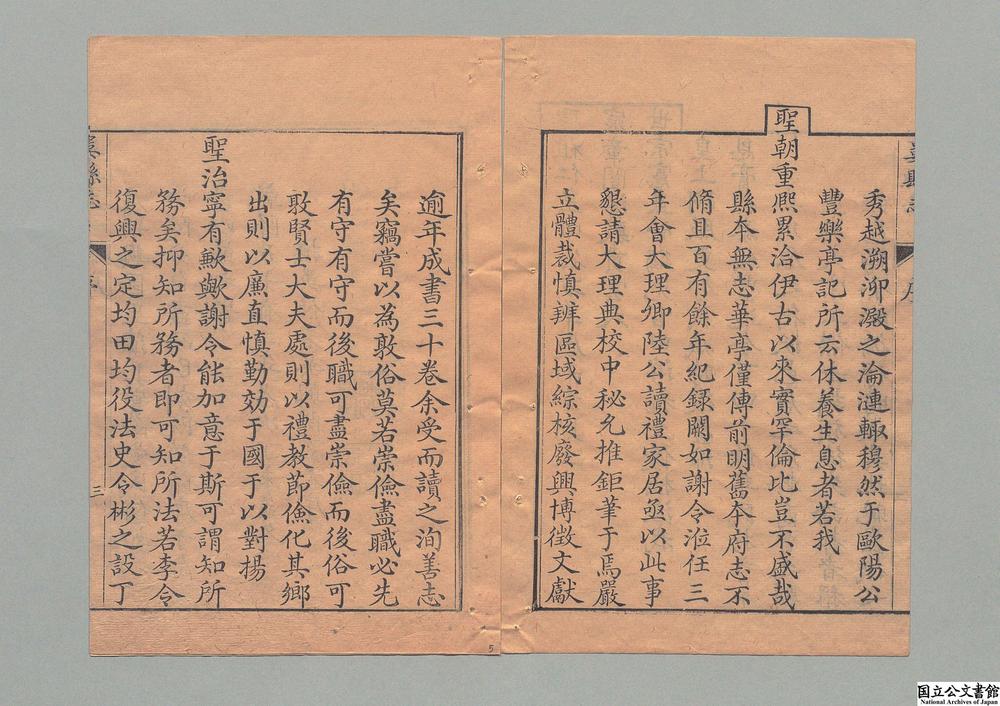 秀越溯沠澱之淪漣輙穆然于歐陽公
豐樂亭記所云休養生息者若我
聖朝重熈累洽伊古以來實罕倫比豈不盛哉
縣本無志華亭僅傳前明舊本府志不
脩且百有餘年紀録闕如謝令涖任三
年會大理卿陸公讀禮家居亟以此事
懇請大理典校中秘允推鉅筆于焉嚴
立體裁慎辨區域綜核廢興博徴文獻
逾年成書三十卷余受而讀之洵善志
矣竊嘗以為敦俗莫若崇儉盡職必先
有守有守而後職可盡崇儉而後俗可
敦賢士大夫處則以禮教節儉化其鄉
出則以廉直慎勤効于國于以對揚
聖治寧有歉歟謝令能加意于斯可謂知所
務矣抑知所務者即可知所法若李令
復興之定均田均役法史令彬之設丁
婁縣志
序
三
5
国立公文書館
National Archives of Japan